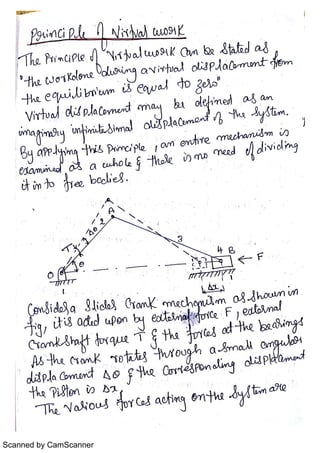 Principle of Virtual work
The Principle of Virtual work Can be Stated as
"the workdone during a virtual displacement from
the equilibrium is equal to zero"
Virtual displacement may be defined as an
imaginary infinitesimal displacement of the System.
By applying this Principle, an entire mechanism is
examined as a whole & there is no need of dividing
it in to free bodies.
A
2
T
Δθ
θ
3
4 B
F
O
1
1
Δx
Consider a Slider Crank mechanism as shown in
fig, it is acted upon by external force F, external
Crankshaft torque T & the forces at the bearings
As the crank rotates through a small angular
displacement Δθ & the Corresponding displacement
the Piston is Δx,
The Various forces acting on the System are
Scanned by CamScanner